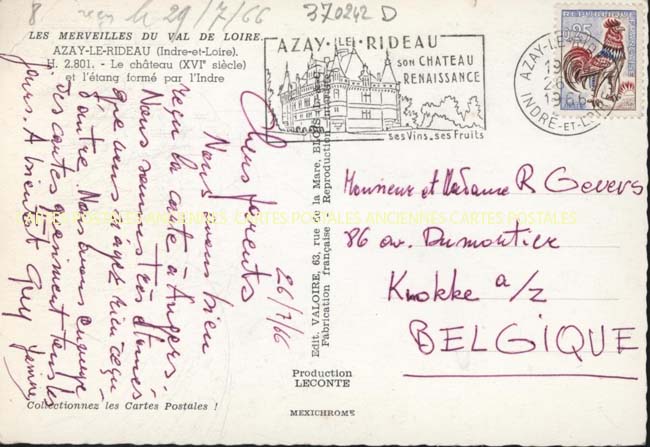 8 reçu le 29/7/66
370242 D
LES MERVEILLES DU VAL DE LOIRE
AZAY-LE-RIDEAU (Indre-et-Loire).
H. 2.801. - Le château (XVIe siècle)
et l'étang formé par l'Indre
AZAY-LE-RIDEAU
SON CHATEAU
RENAISSANCE
ses Vins_ses Fruits
AZAY-LE-
1966
INDRE-ET-
0,25
26/7/66
Chers parents
Nous avons bien
reçu la carte à Angers.
Nous sommes très étonnés
que vous n'ayez rien reçu
d'autre. Nous vous envoyé
des cartes quasiment tous les
jours. A bientôt Guy
Edit. VALOIRE, 63, rue de la Mare, BLOIS
Fabrication française - Reproduction interdite
Monsieur et Madame R Gevers
86 av. Dumortier
Knokke a/z
BELGIQUE
CARTES POSTALES ANCIENNES CARTES POSTALES
Production
LECONTE
Collectionnez les Cartes Postales !
MEXICHROME